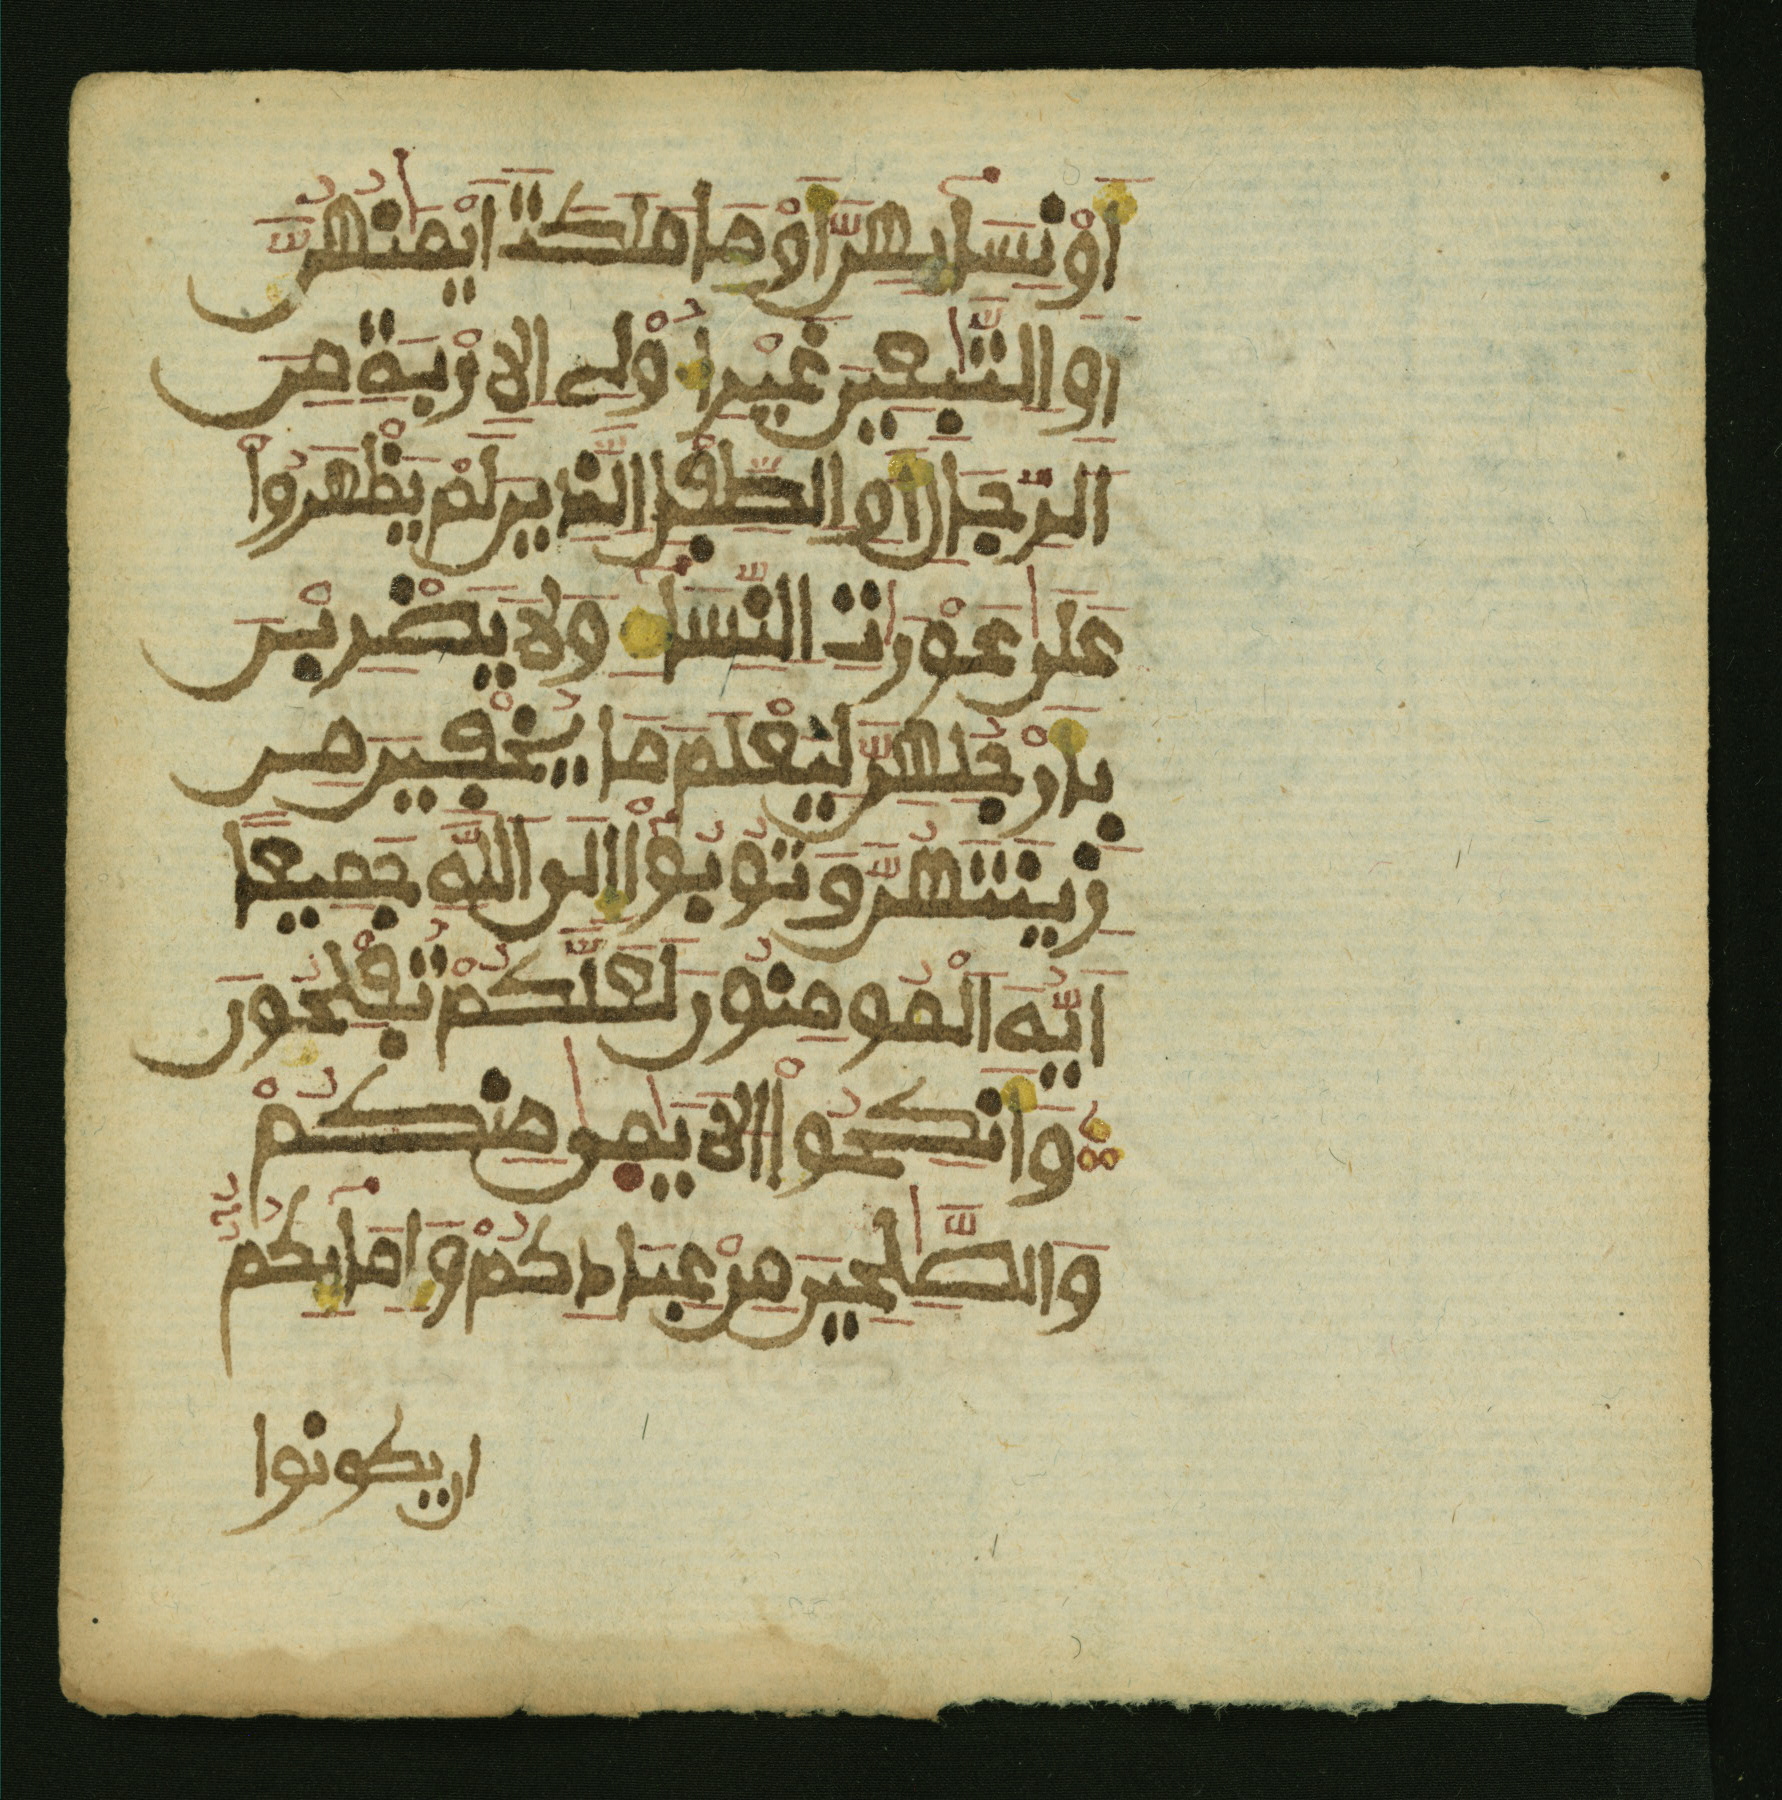 أَوْ نِسَآئِهِنَّ أَوْ مَا مَلَكَتَ اَيْمَٰنُهُنَّ
أَوِ التَّٰبِعِينَ غَيْرِ أُوْلِى الِارْبَةِ مِنَ
اَلرِّجَالِ أَوِ اِلطِّفْلِ اِلَّذِينَ لَمْ يَظْهَرُواْ
عَلَىٰ عَوْرَٰتِ اِلنِّسَآءِ وَلَا يَضْرِبْنَ
بِأَرْجُلِهِنَّ لِيُعْلَمَ مَا يُخْفِينَ مِن
زِينَتِهِنَّ وَتُوبُوٓاْ إِلَى اَللَّهِ جَمِيعًا
اَيُّهَ اَلْمُومِنُونَ لَعَلَّكُمْ تُفْلِحُونَ
وَأَنكِحُواْ اُلَايَٰمَىٰ مِنكُمْ
وَالصَّٰلِحِينَ مِنْ عِبَادِكُمْ وَإِمَآئِكُمُۥٓ
ان يكونوا